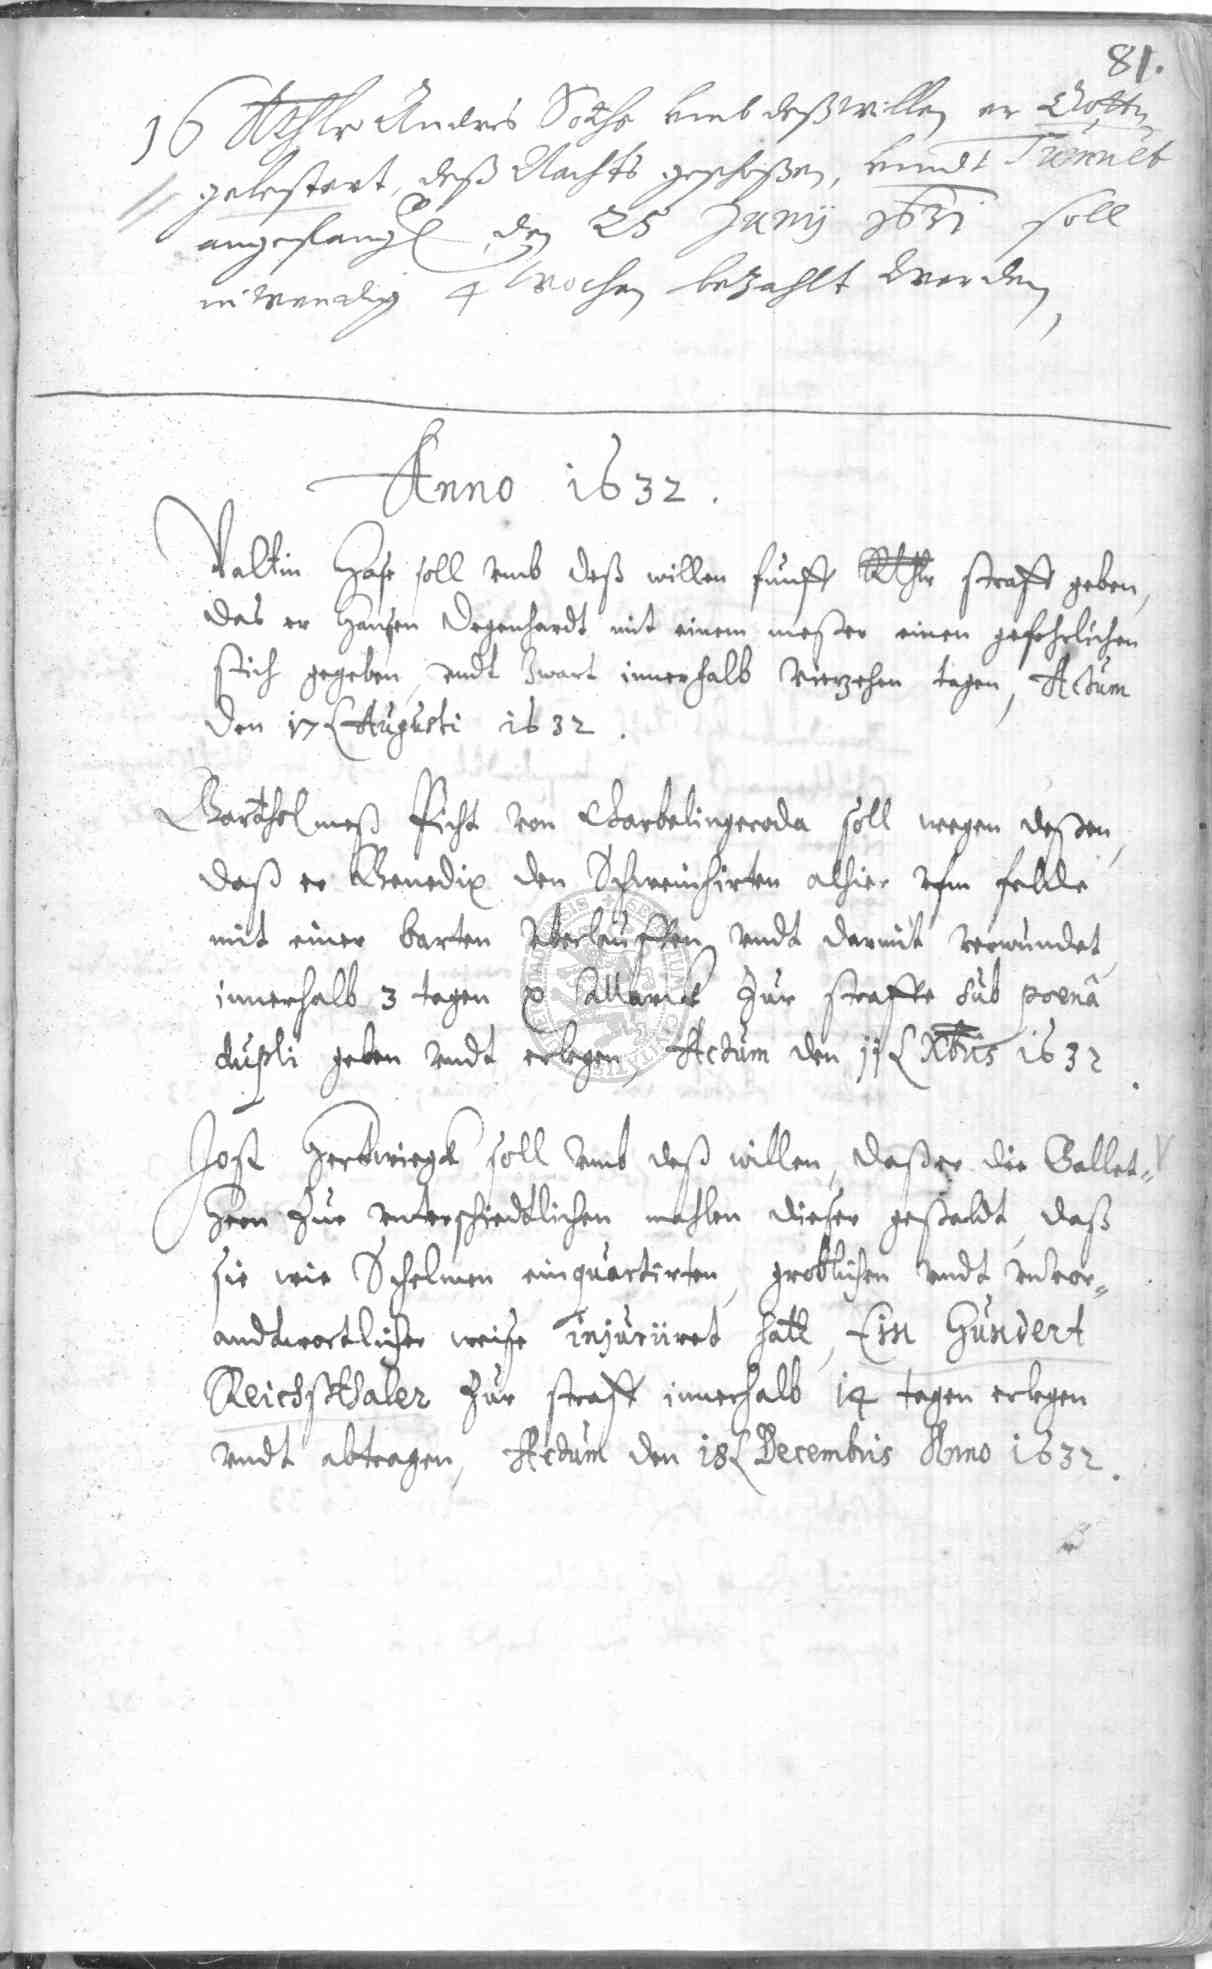 81.
16 Rthlr Andres Sothe umb deßwillen er Gotts
gelestert, deß Nachts geschoßen, undt Tumult
angefangen, den 25 Junij 1631 soll
inwendig 4 wochen bezahlt werden,
Anno 1632.
Valtin Hase soll umb deß willen funff Rthlr straff geben,
das er Hansen Degenhardt mit einem meßer einen gefehrlichen
stich gegeben, undt zwart innerhalb vierzehen tagen, Actum
den 17 Augusti 1632.
Barthelmeß Ficht von Berbelingeroda soll wegen deßen,
daß er Benedix den Schweinhirten alhier ufm felde
mit einer barten uberlauffen undt darmit verwundet,
innerhalb 3 tagen x zur straffe sub poenâ
dupli geben undt erlegen, Actum den 11 Xbris 1632.
Jost Hertwiegk soll umb deß willen, daß er die
Hern zur unterschiedtlichen mahlen dieser gestaldt, daß
sie wie Schelmen einquartirten, groblichen undt unvor-
andtwortlicher weise injuriiret hatt, Ein Hundert
Reichsthaler zur straff innerhalb 14 tagen erlegen
undt abtragen, Actum den 18 Decembris Anno 1632.